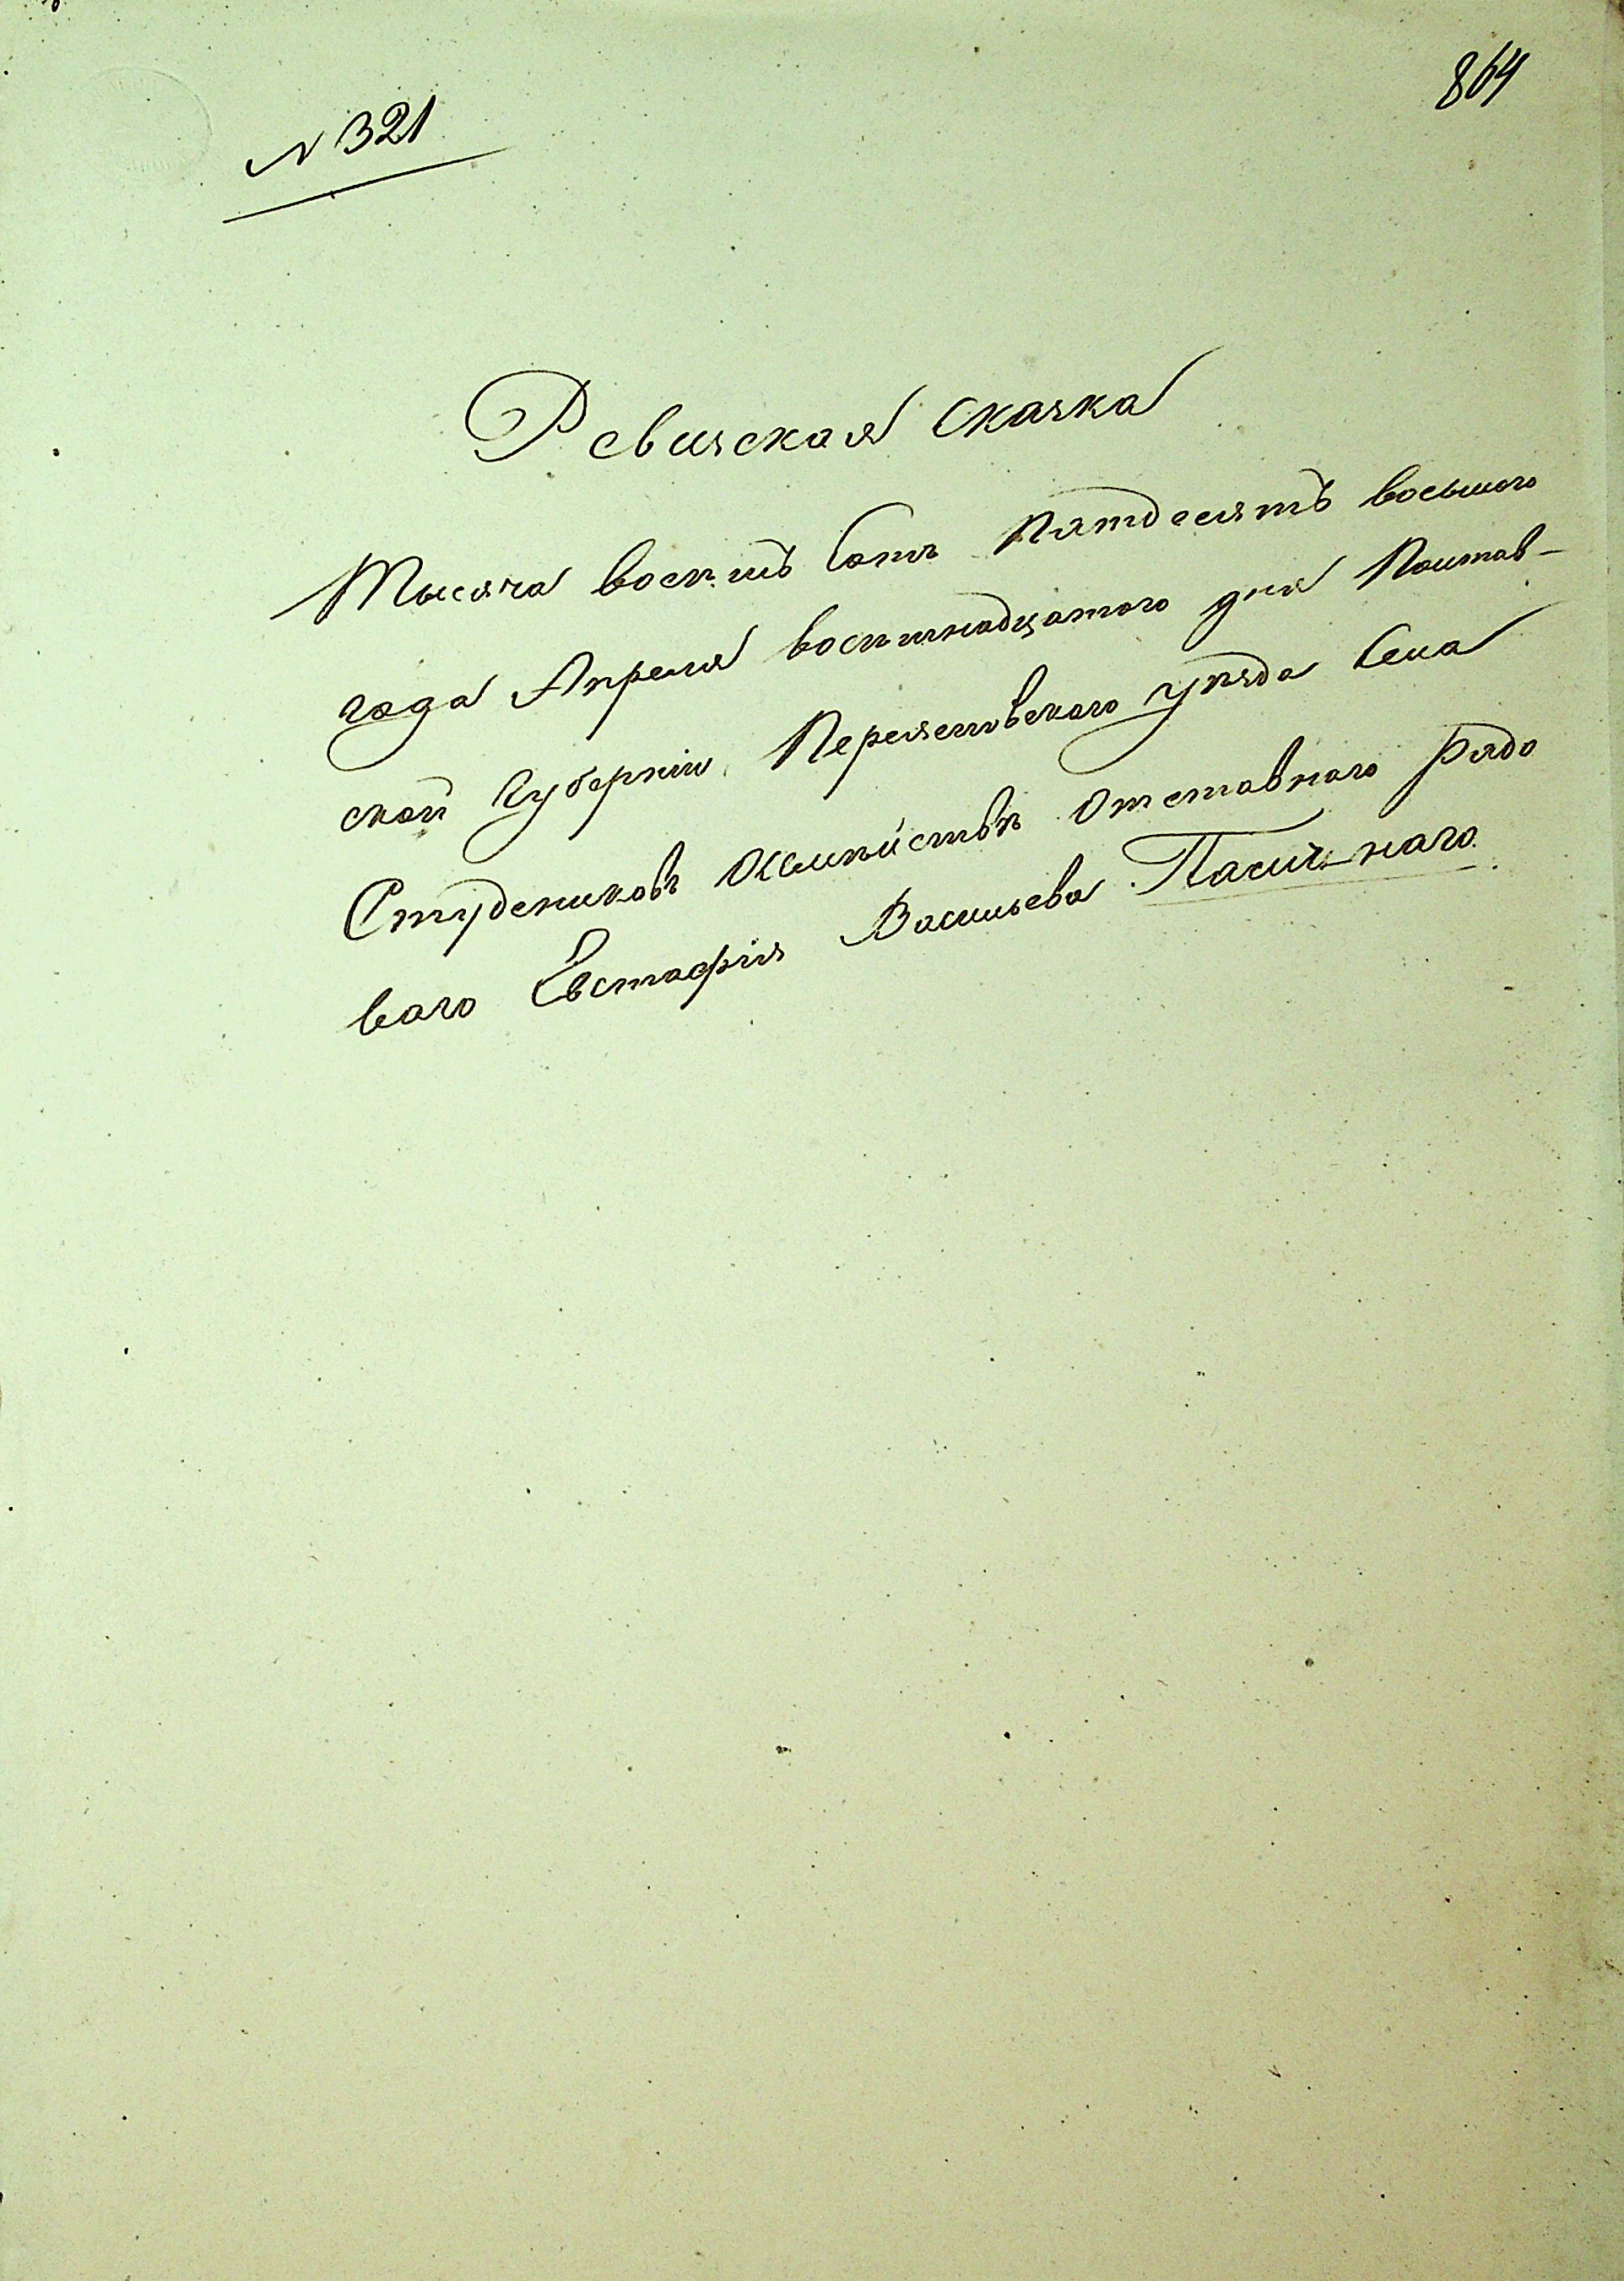 864
N 321
Ревизская сказка
Тысяча восемь сотъ пятдесятъ восьмого
года Апреля восемнадцатого дня Полтав-
ской Губерніи Переяславского уѣзда Села
Студениковъ Семейства отставного рядо
вого Евстафія Васильева Пасичнаго